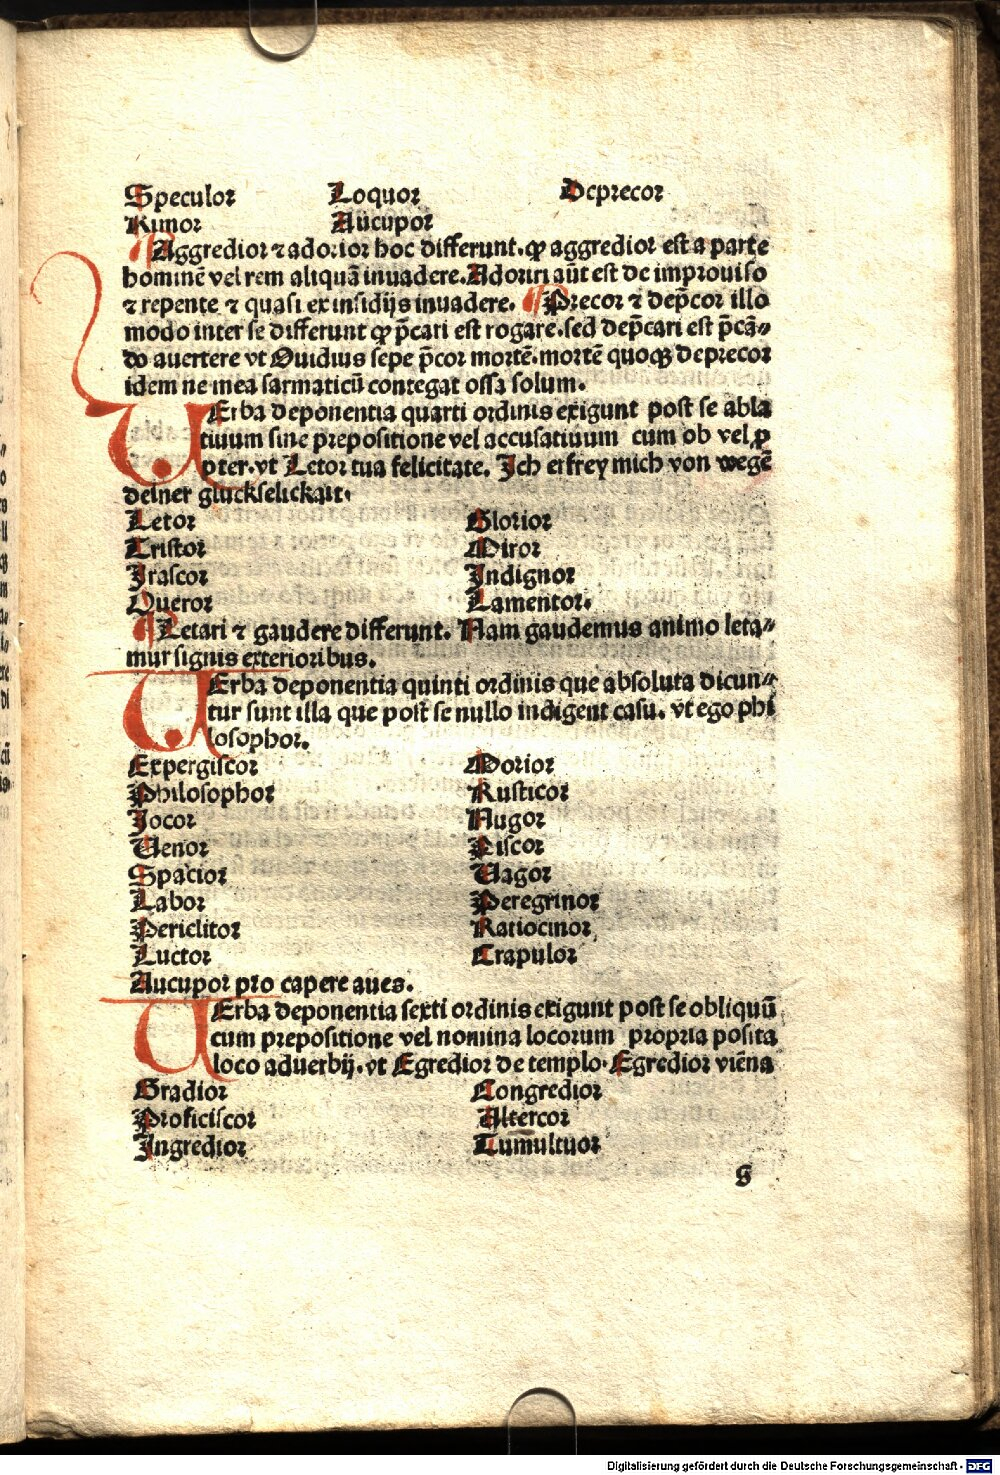 Speculor Loquor Deprecor
Rimor Aucupor
¶ Aggredior ⁊ adorior hoc differunt. ꝙ aggredior est a parte
hominē vel rem aliquā inuadere. Adoriri aūt est de improuiso
⁊ repente ⁊ quasi ex insidijs inuadere. ¶ Precor ⁊ dep̄cor illo
modo inter se differunt ꝙ p̄cari est rogare. sed dep̄cari est p̄cā⸗
do auertere vt Ouidius sepe p̄cor mortē. mortē quoqꝫ deprecor
idem ne mea sarmaticū contegat ossa solum.
UErba deponentia quarti ordinis exigunt post se abla
tiuum sine prepositione vel accusatiuum cum ob vel ꝓ
pter. vt Letor tua felicitate. Ich erfrey mich von wegē
deiner gluckselickait.
Letor Glorior
Tristor Miror
Irascor Indignor
Queror Lamentor.
¶ Letari ⁊ gaudere differunt. Nam gaudemus animo leta⸗
mur signis exterioribus.
UErba deponentia quinti ordinis que absoluta dicun⸗
tur sunt illa que post se nullo indigent casu. vt ego phi
losophor.
Expergiscor Morior
Philosophor Rusticor
Jocor Nugor
Uenor Piscor
Spacior Uagor
Labor Peregrinor
Periclitor Ratiocinor
Luctor Crapulor
Aucupor pro capere aues.
UErba deponentia sexti ordinis exigunt post se obliquū
cum prepositione vel nomina locorum propria posita
loco aduerbij. vt Egredior de templo. Egredior viēna
Gradior Congredior
Proficiscor Altercor
Ingredior Tumultuor
g
Digitalisierung gefördert durch die Deutsche Forschungsgemeinschaft - DFG